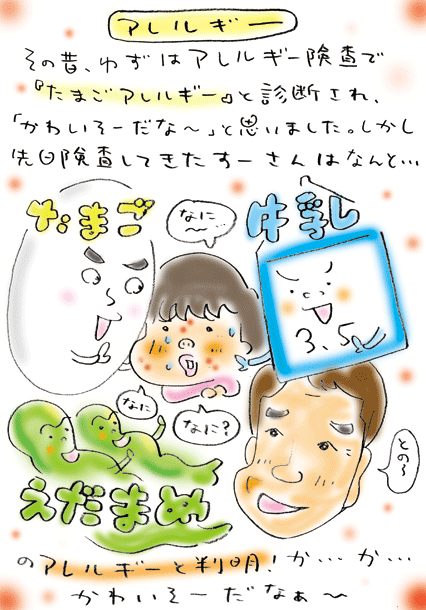 アレルギー
その昔、ゆずはアレルギー険査で
『たまごアレルギー』と診断され、
「かわいそーだな〜」と思いました。しかし
先日険査してきたすーさんはなんと…
たまご
なに〜
牛乳
3.5
なに
なに?
との〜
えだまめ
のアレルギーと判明!か…か…
かわいそーだなぁ〜